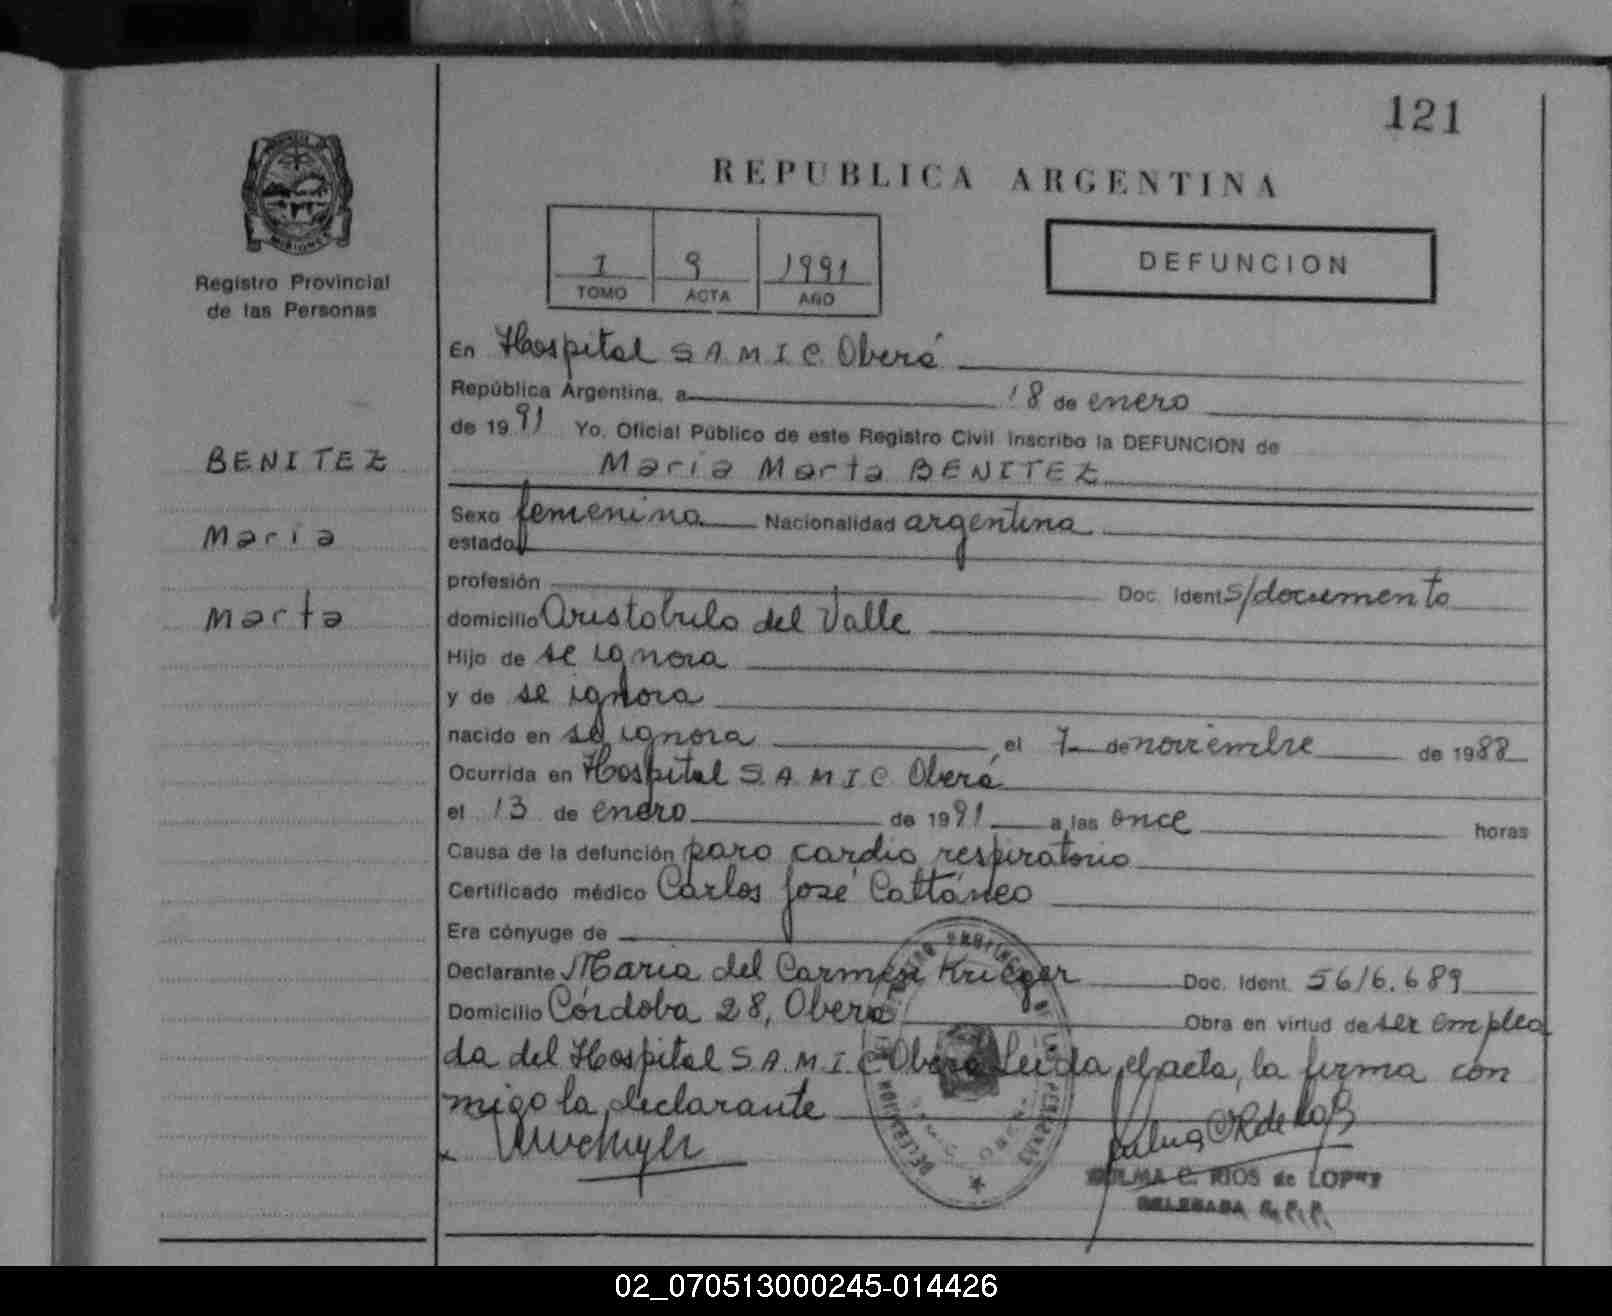 121
REPUBLICA ARGENTINA
MISIONES
Registro Provincial
de las Personas
1 9 1991
TOMO ACTA AÑO
DEFUNCION
BENITEZ
Maria
Marta
En Hospital S.A.M.I.C. Oberá
República Argentina, a 18 de enero
de 1991 Yo, Oficial Público de este Registro Civil inscribo la DEFUNCION de
Maria Marta BENITEZ
Sexo femenino Nacionalidad argentina
estado
profesión Doc. Ident. s/documento
domicilio Aristobulo del Valle
Hijo de se ignora
y de se ignora
nacido en se ignora el 7 de noviembre de 1988
Ocurrida en Hospital S.A.M.I.C. Oberá
el 13 de enero de 1991 a las once horas
Causa de la defunción paro cardio respiratorio
Certificado médico Carlos José Cattáneo
Era cónyuge de
Declarante Maria del Carmen Krieger Doc. Ident. 5616.689
Domicilio Córdoba 28, Oberá Obra en virtud de ser emplea
da del Hospital S.A.M.I.C. Oberá Leída el acta, la firma con
migo la declarante
ZULMA C. RIOS de LOPEZ
DELEGADA R.P.P.
02_070513000245-014426